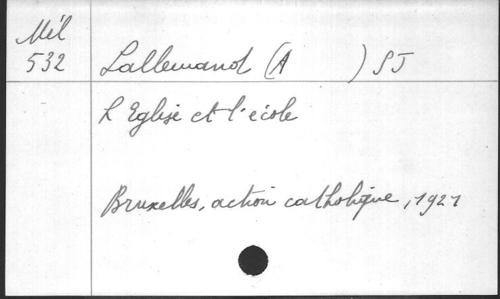 Mél
532
Lallemand (A ) SJ
L'Eglise et l'école
Bruxelles, action catholique, 1921